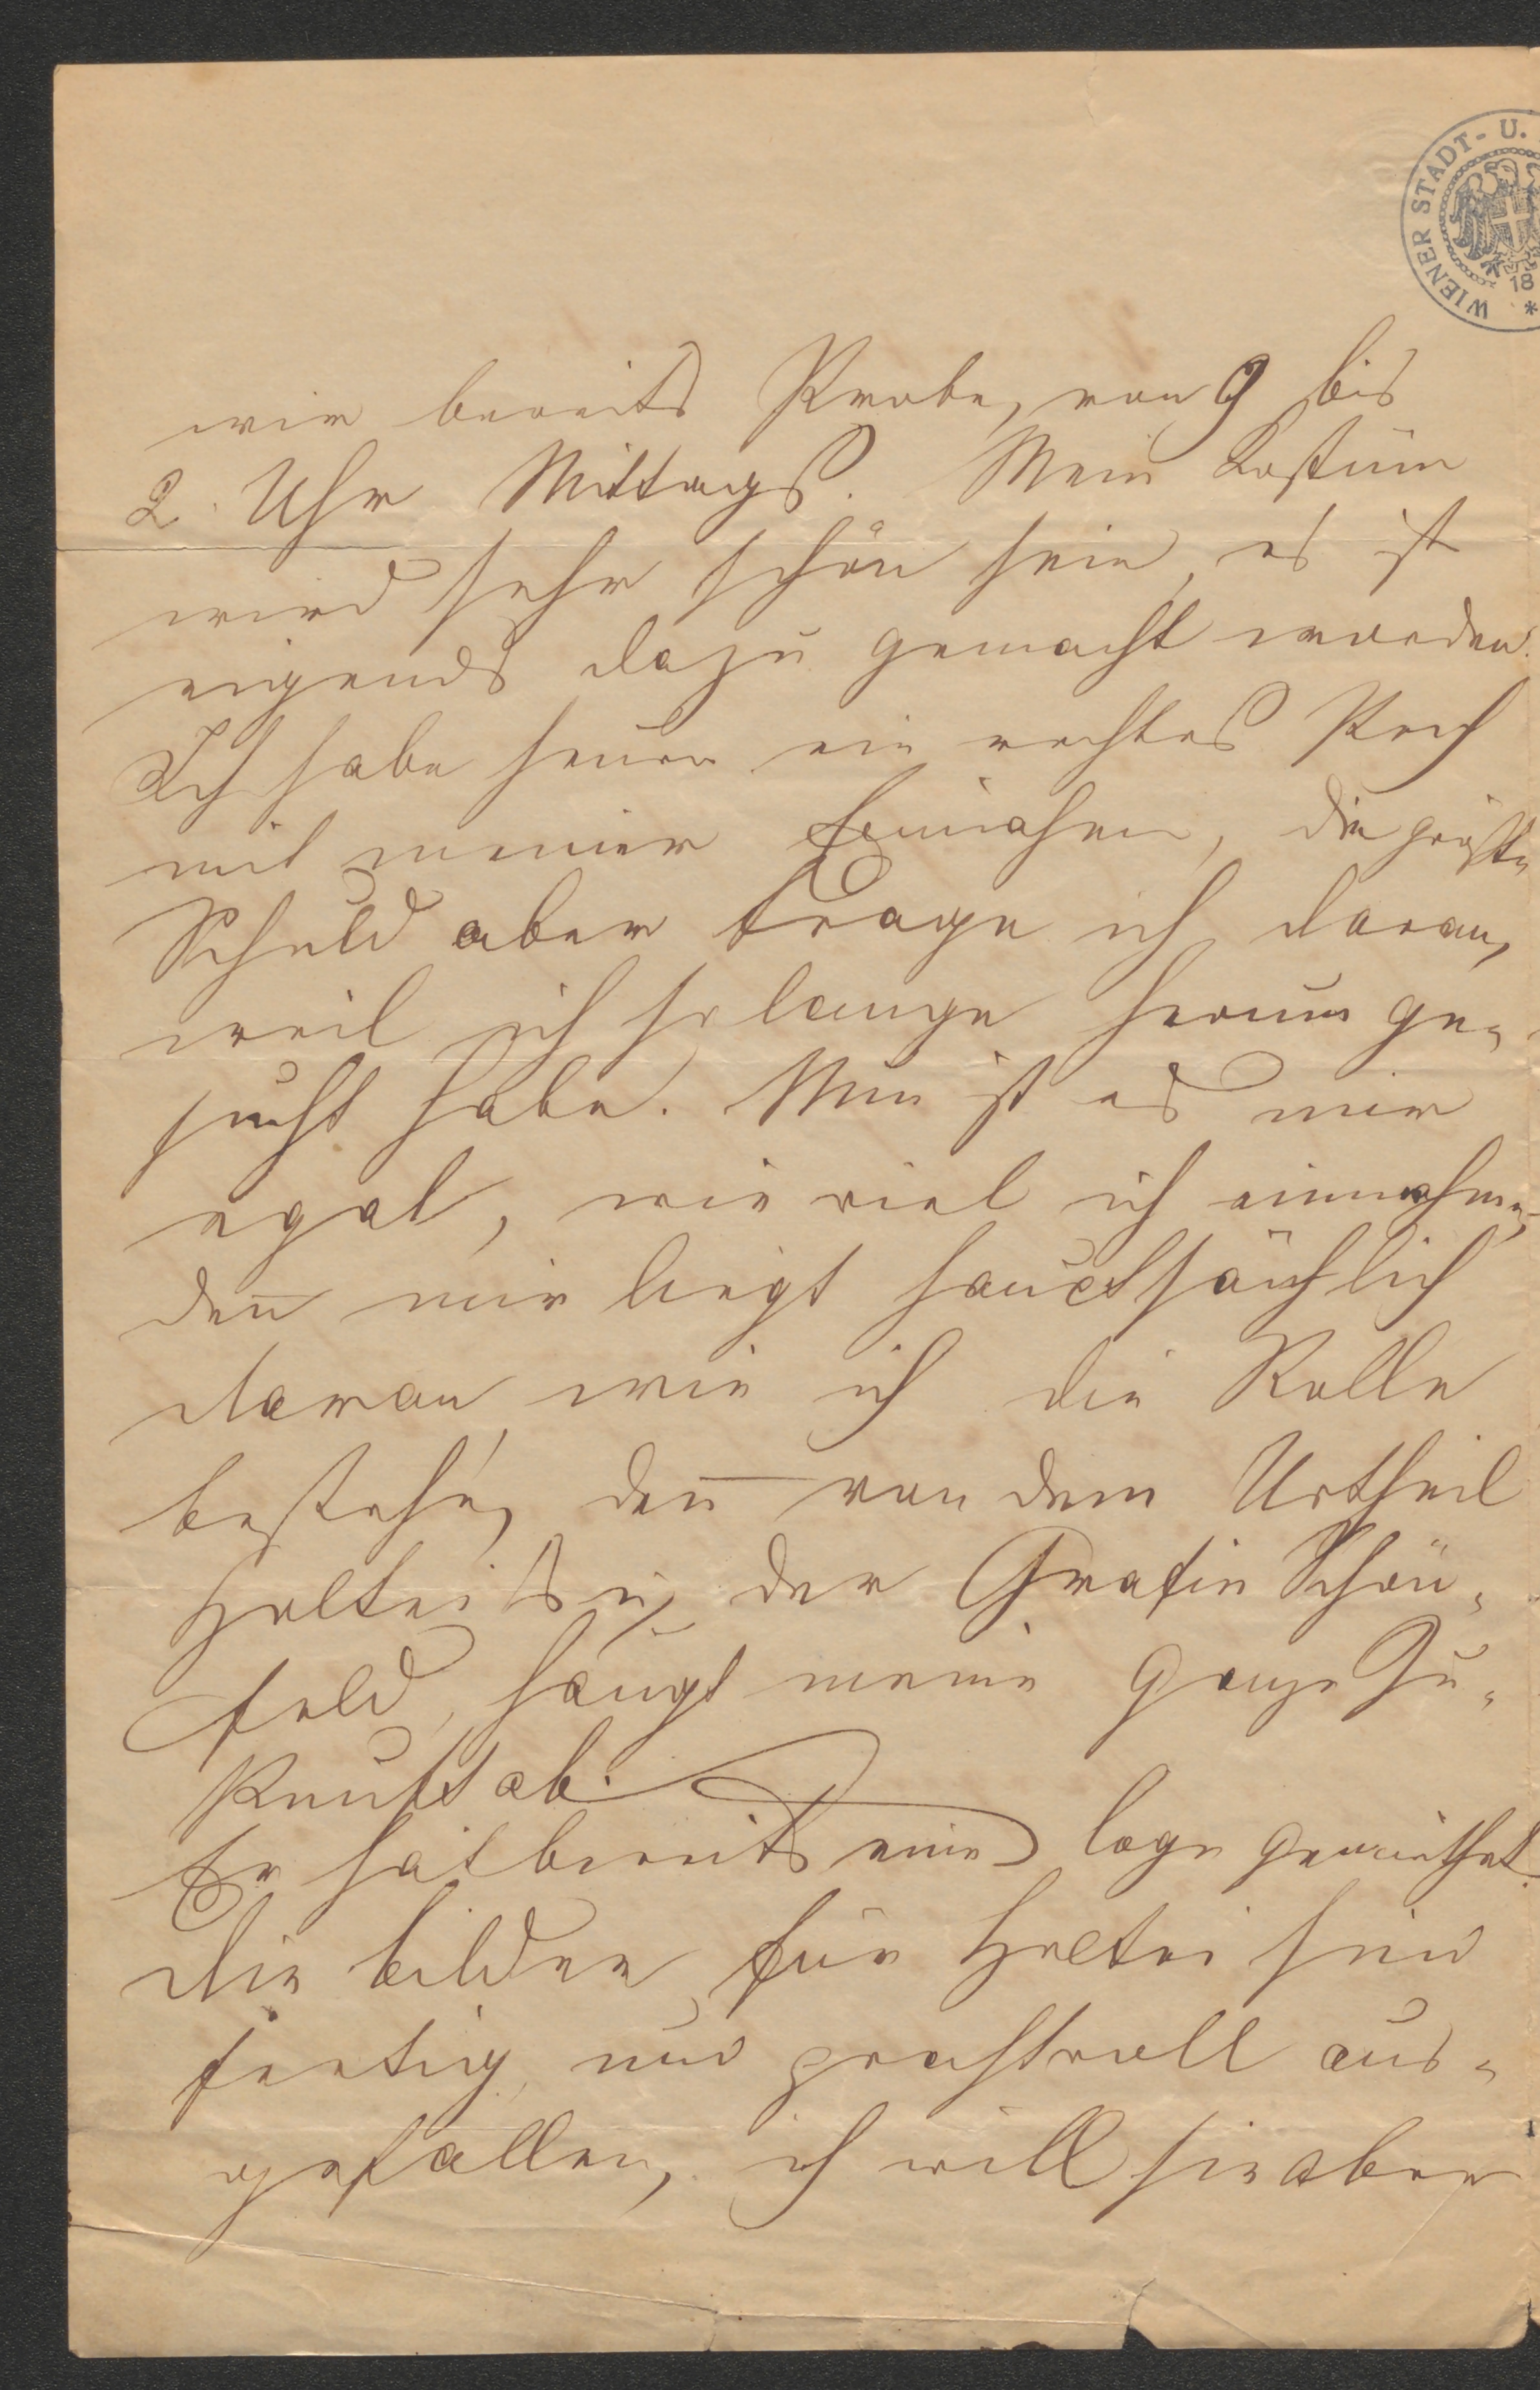 WIENER STADT- U.
18
wir bereits Probe, von 9 bis
2. Uhr Mittags. Mein Kostüm
wird sehr schön sein, es ist
eigends dazu gemacht worden.
Ich habe heuer ein rechtes Pech
mit meiner Einnahme, die größte
Schuld aber trage ich daran,
weil ich so lange herum ge-
sucht habe. Nun ist es mir
egal, wie viel ich einnehme,
den̅ mir liegt hauptsächlich
daran, wie ich die Rolle
bestehe, den̅ von dem Urtheil
Holtei's u. der Grafin Schön-
feld, hängt meine ganze Zu-
kunft ab.
Er hat bereits eine Loge gemiethet.
Die bilder für Holtei sind
fertig, und prachtvoll aus-
gefallen, ich will sie aber